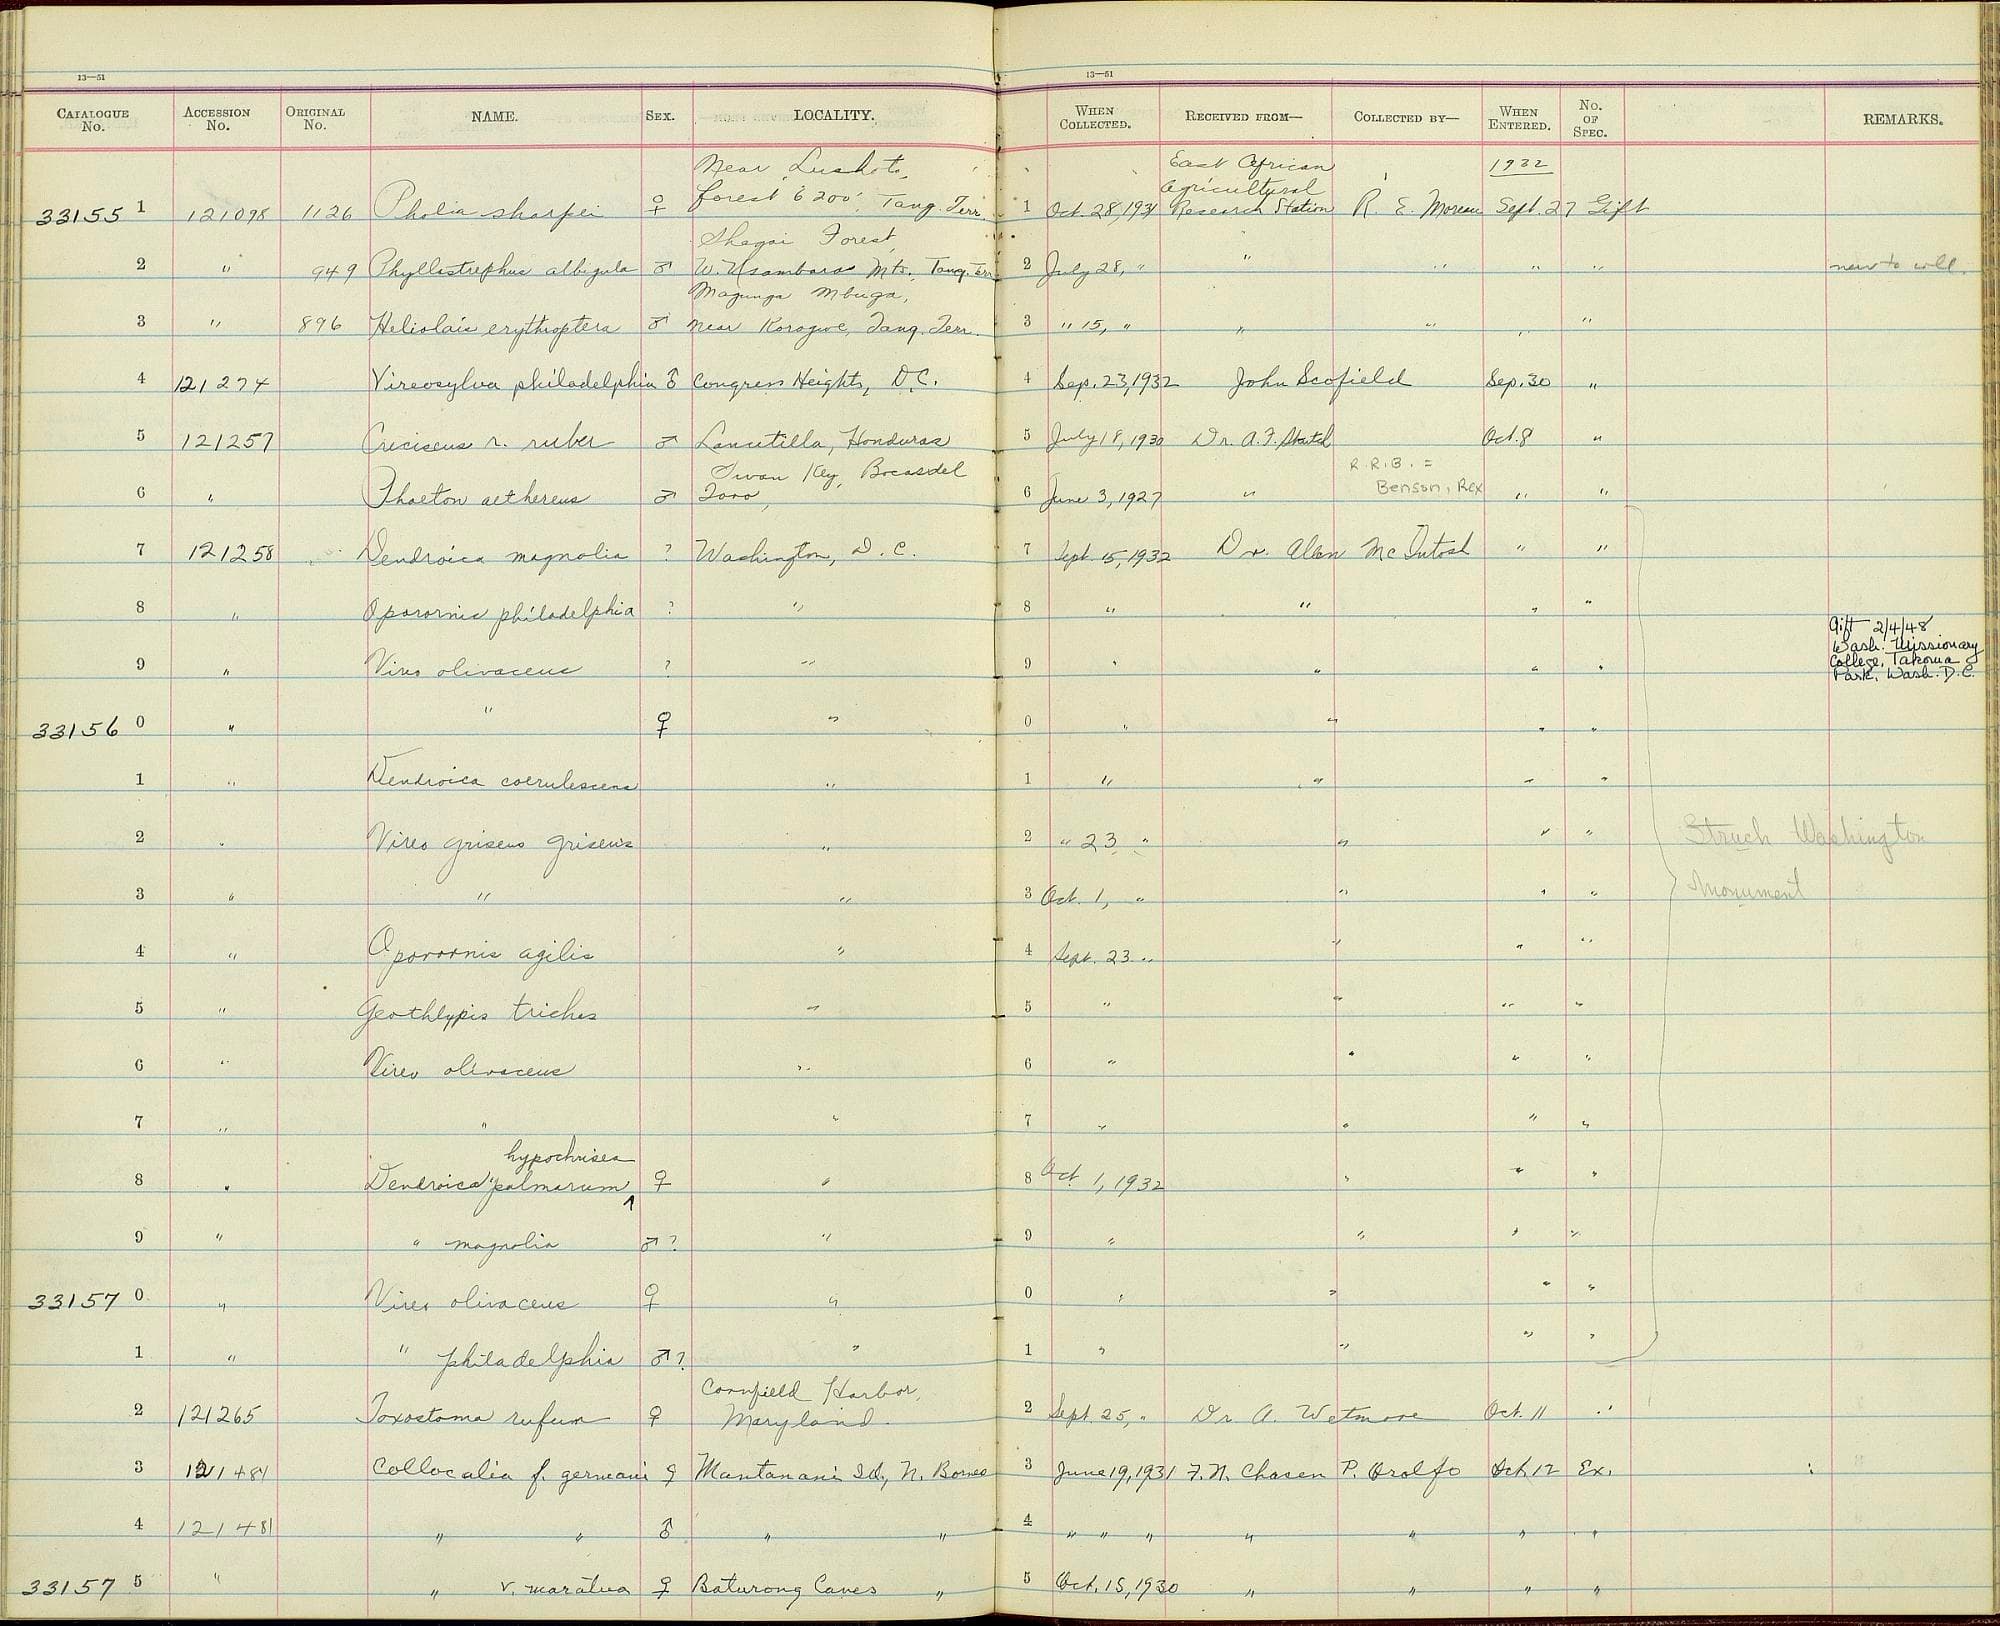 13—51
CATALOGUE No. ACCESSION No. ORIGINAL No. NAME. SEX. LOCALITY.
33155 1 121098 1126 Pholia sharpei ♀ Near Lushoto, forest 6200', Tang. Terr.
2 " 949 Phyllastrephus albigula ♂ Shagai Forest, W. Usambaras Mts. Tang. Terr.
3 " 896 Heliolais erythroptera ♂ Magunga Mbuga, near Korogwe, Tang. Terr.
4 121274 Vireosylva philadelphia ♂ Congress Heights, D.C.
5 121257 Creciscus r. ruber ♂ Lancetilla, Honduras
6 " Phaeton aethereus ♂ Swan Key, Bocas del Toro,
7 121258 Dendroica magnolia ? Washington, D.C.
8 " Oporornis philadelphia ? "
9 " Vireo olivaceus ? "
33156 0 " " ♀ "
1 " Dendroica coerulescens "
2 " Vireo griseus griseus "
3 " " "
4 " Oporornis agilis "
5 " Geothlypis trichas "
6 " Vireo olivaceus "
7 " " "
8 " Dendroica palmarum hypochrisea ♀ "
9 " " magnolia ♂? "
33157 0 " Vireo olivaceus ♀ "
1 " " philadelphia ♂? "
2 121265 Toxostoma rufum ♀ Cornfield Harbor, Maryland.
3 121481 Collocalia f. germani ♀ Mantanani Id., N. Borneo
4 121481 " " ♂ " "
33157 5 " " v. maratua ♀ Baturong Caves "
13—51
WHEN COLLECTED. RECEIVED FROM— COLLECTED BY— WHEN ENTERED. NO. OF SPEC. REMARKS.
1932
1 Oct. 28, 1931 East African Agricultural Research Station R. E. Moreau Sept. 27 Gift
2 July 28, " " " " " new to coll.
3 " 15, " " " " "
4 Sep. 23, 1932 John Scofield Sep. 30 "
5 July 18, 1930 Dr. A. F. Oct. 8 "
R.R.B. =
6 June 3, 1927 " Benson, Rex " "
7 Sept. 15, 1932 Dr. Alan McIntosh " "
8 " " " "
Gift 2/4/48
Wash. Missionary
College, Takoma
Park, Wash. D.C.
9 " " " "
0 " " " "
1 " " " "
2 " 23 " " " "
Struck Washington
Monument
3 Oct. 1, " " " "
4 Sept. 23 " " " "
5 " " " "
6 " " " "
7 " " " "
8 Oct 1, 1932 " " "
9 " " " "
0 " " " "
1 " " " "
2 Sept 25, " Dr. A. Wetmore Oct. 11 "
3 June 19, 1931 F. N. Chasen P. Orolfo Oct. 12 Ex.
4 " " " " " " "
5 Oct. 15, 1930 " " " "